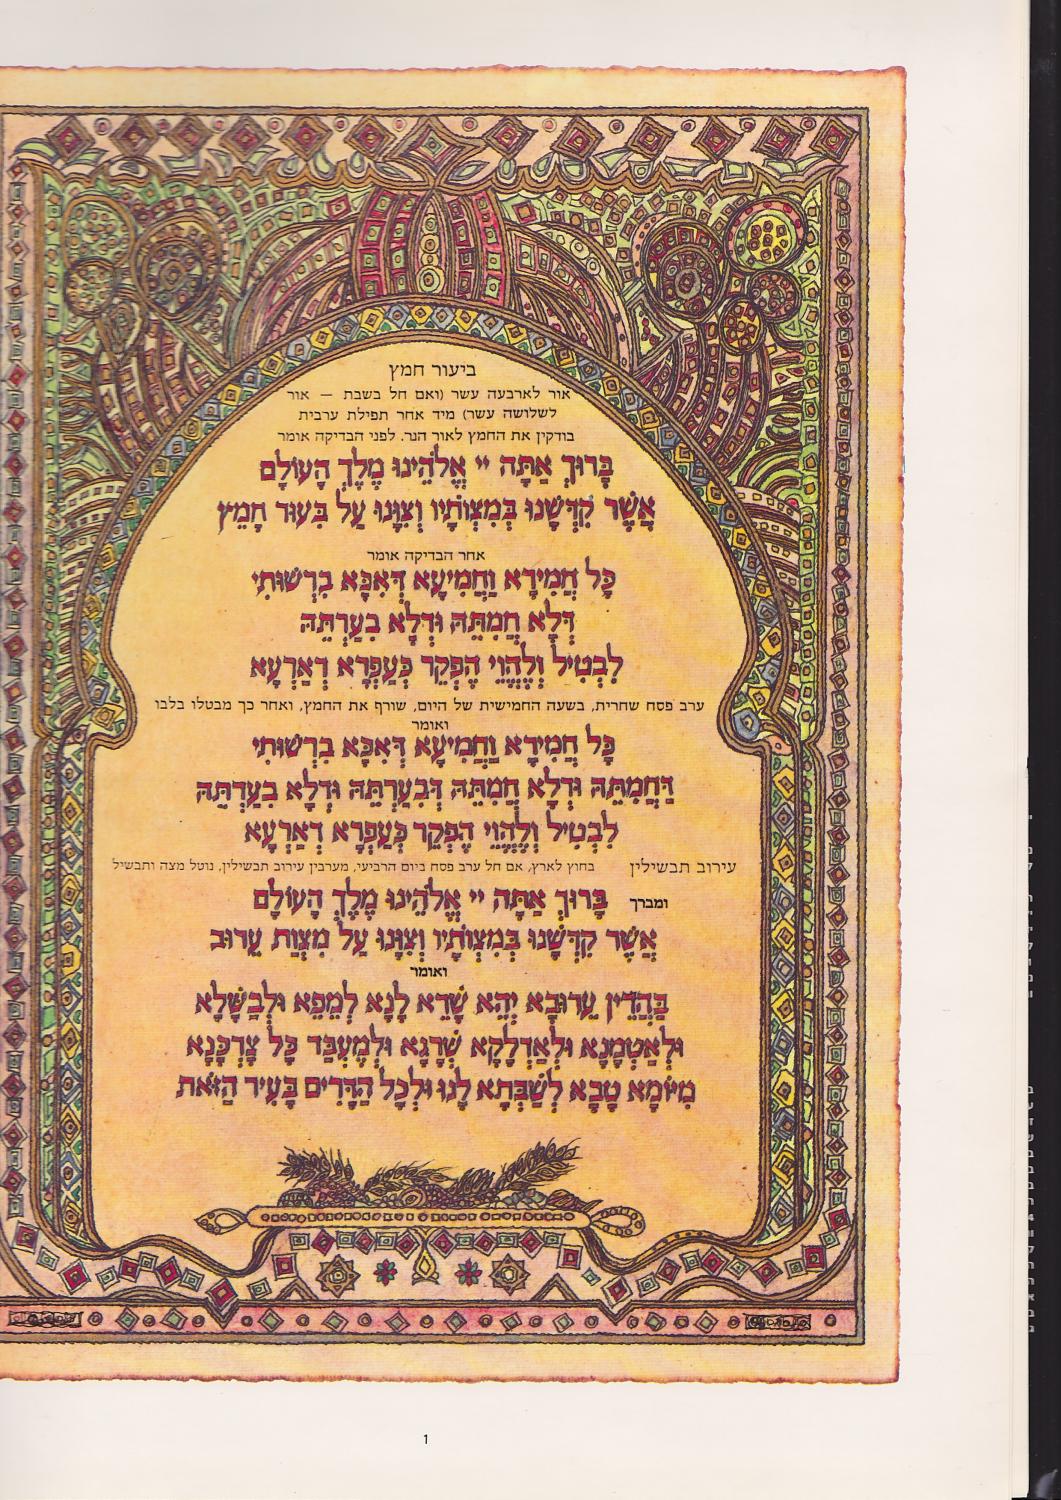 ביעור חמץ
אור לארבעה עשר (ואם חל בשבת — אור
לשלושה עשר) מיד אחר תפילת ערבית
בודקין את החמץ לאור הנר. לפני הבדיקה אומר
בָּרוּךְ אַתָּה יי אֱלֹהֵינוּ מֶלֶךְ הָעוֹלָם
אֲשֶׁר קִדְּשָׁנוּ בְּמִצְוֹתָיו וְצִוָּנוּ עַל בִּעוּר חָמֵץ
אחר הבדיקה אומר
כָּל חֲמִירָא וַחֲמִיעָא דְּאִכָּא בִרְשׁוּתִי
דְּלָא חֲמִתֵּהּ וּדְלָא בִעַרְתֵּהּ
לִבְטִיל וְלֶהֱוֵי הֶפְקֵר כְּעַפְרָא דְאַרְעָא
ערב פסח שחרית, בשעה החמישית של היום, שורף את החמץ, ואחר כך מבטלו בלבו
ואומר
כָּל חֲמִירָא וַחֲמִיעָא דְּאִכָּא בִרְשׁוּתִי
דַּחֲמִתֵּהּ וּדְלָא חֲמִתֵּהּ דְּבִעַרְתֵּהּ וּדְלָא בִעַרְתֵּהּ
לִבְטִיל וְלֶהֱוֵי הֶפְקֵר כְּעַפְרָא דְאַרְעָא
עירוב תבשילין בחוץ לארץ, אם חל ערב פסח ביום הרביעי, מערבין עירוב תבשילין, נוטל מצה ותבשיל
ומברך בָּרוּךְ אַתָּה יי אֱלֹהֵינוּ מֶלֶךְ הָעוֹלָם
אֲשֶׁר קִדְּשָׁנוּ בְּמִצְוֹתָיו וְצִוָּנוּ עַל מִצְוַת עֵרוּב
ואומר
בַּהֲדֵין עֵרוּבָא יְהֵא שָׁרֵא לָנָא לְמֵפֵא וּלְבַשָּׁלָא
וּלְאַטְמָנָא וּלְאַדְלָקָא שְׁרָגָא וּלְמֶעְבַּד כָּל צָרְכָּנָא
מִיּוֹמָא טָבָא לְשַׁבְּתָא לָנוּ וּלְכָל הַדָּרִים בָּעִיר הַזֹּאת
1